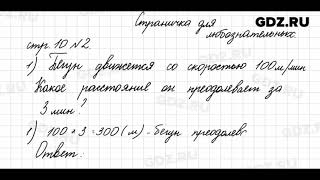 Страничка для
GDZ.RU
любознательных.
стр. 10 № 2.
1) Бегун движется со скоростью 100 м/мин
Какое расстояние он преодолевает за
3 мин?
1) 100 * 3 = 300 (м) - бегун преодолев
Ответ:
GDZ.RU